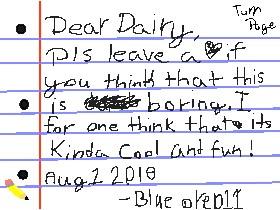 Turn
Page
Dear Dairy,
Pls leave a if
you think that this
is boring. I
for one think that its
Kinda Cool and fun!
Aug 1 2018
-Blue